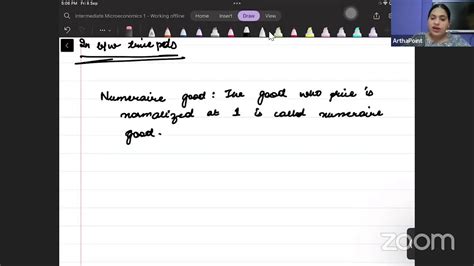 5:08 PM Fri 8 Sep
Intermediate Microeconomics 1 - Working offline
Home Insert Draw View
ArthaPoint
In b/w time pds
Numeraire good : The good who price is
normalized at 1 is called numeraire
good.
zoom